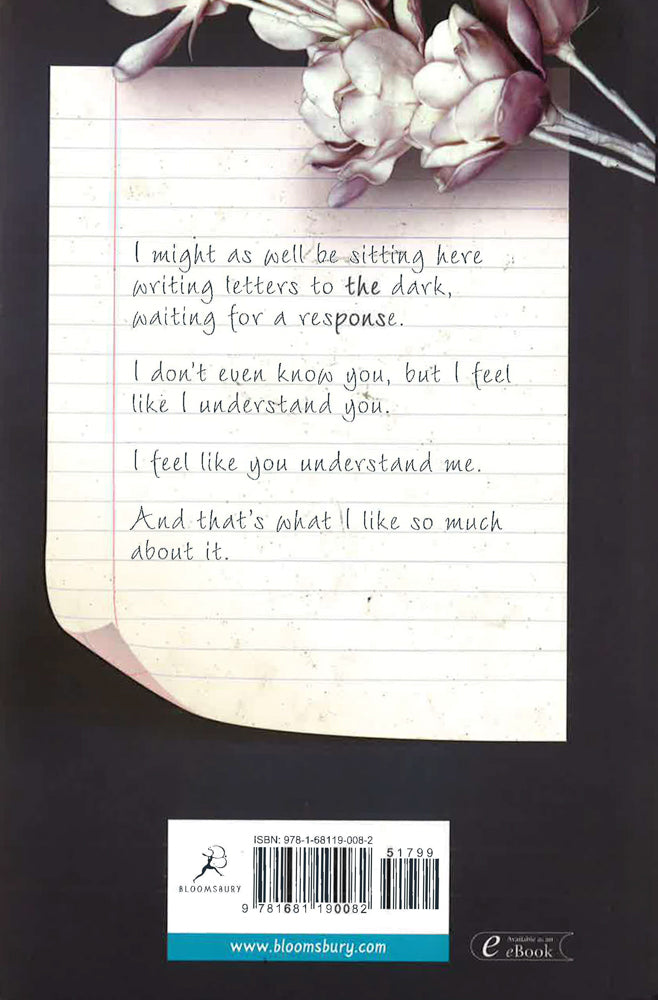 I might as well be sitting here
writing letters to the dark,
waiting for a response.
I don't even know you, but I feel
like I understand you.
I feel like you understand me.
And that's what I like so much
about it.
ISBN: 978-1-68119-008-2
51799
BLOOMSBURY
9 781681 190082
www.bloomsbury.com
e
Available as an
eBook